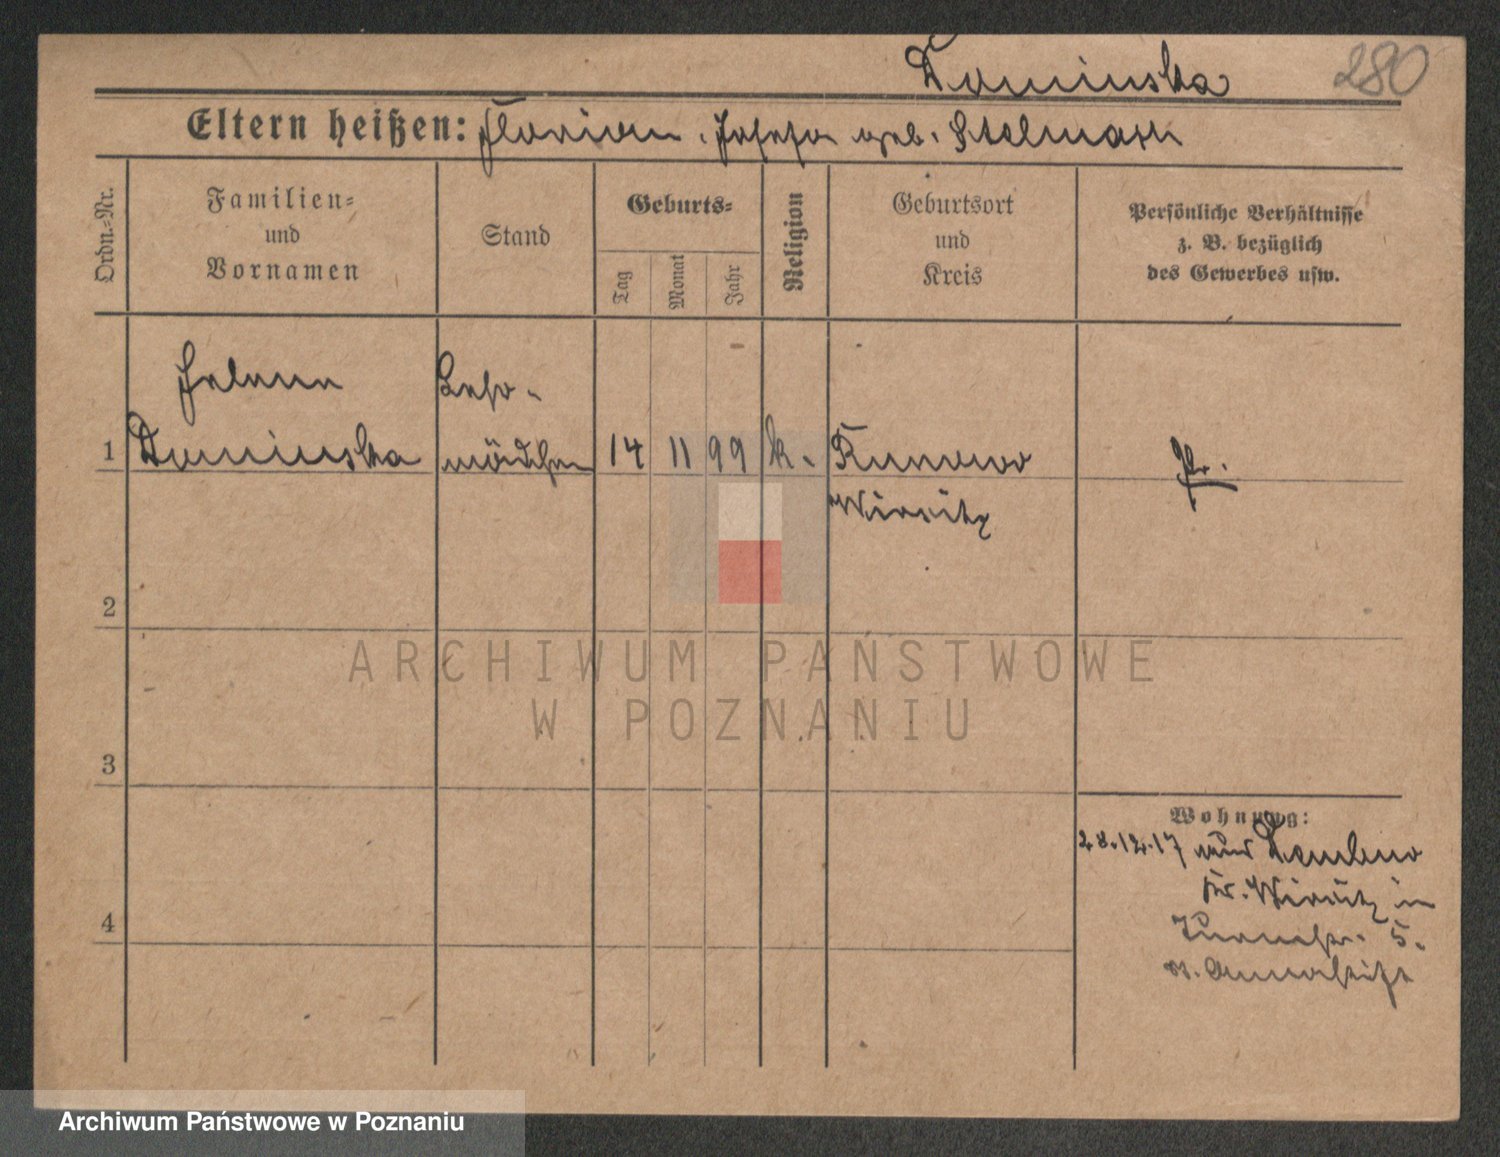 Dominska
280
Eltern heißen: Florian, Josefa geb. Stelmach
Ordn.-Nr.
Familien- und Vornamen
Stand
Geburts-
Tag
Monat
Jahr
Religion
Geburtsort und Kreis
Persönliche Verhältnisse z. B. bezüglich des Gewerbes usw.
Helena
1 Dominska
mädchen
14 11 99 k.
Runowo
Wirsitz
Pr.
2
3
4
Wohnung:
28.12.17 aus Dembno
Kr. Wirsitz in
5.
ARCHIWUM PAŃSTWOWE
W POZNANIU
Archiwum Państwowe w Poznaniu